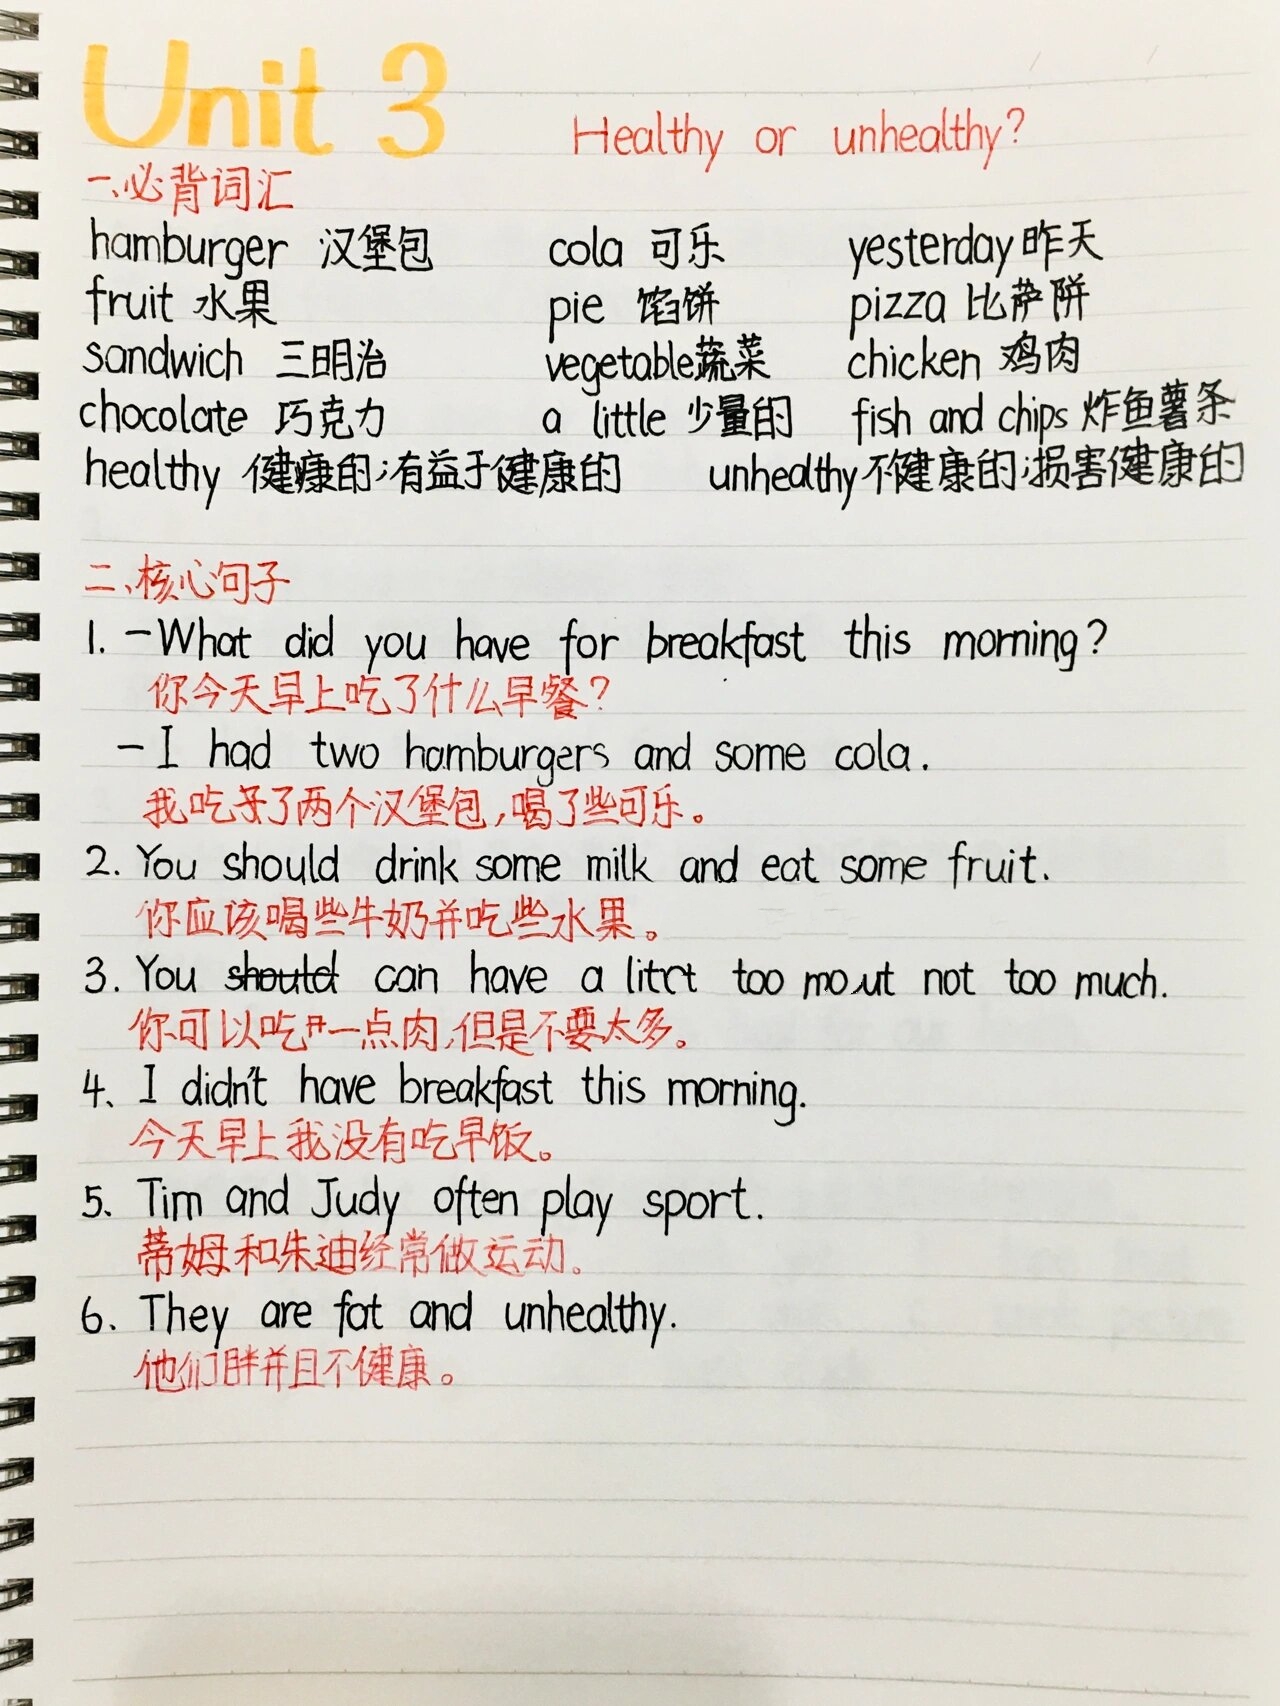 Unit 3 Healthy or unhealthy?
一、必背词汇
hamburger 汉堡包 cola 可乐 yesterday 昨天
fruit 水果 pie 馅饼 pizza 比萨饼
sandwich 三明治 vegetable 蔬菜 chicken 鸡肉
chocolate 巧克力 a little 少量的 fish and chips 炸鱼薯条
healthy 健康的;有益于健康的 unhealthy 不健康的;损害健康的
二、核心句子
1. －What did you have for breakfast this morning?
你今天早上吃了什么早餐?
－I had two hamburgers and some cola.
我吃了两个汉堡包,喝了些可乐。
2. You should drink some milk and eat some fruit.
你应该喝些牛奶并吃些水果。
3. You should can have a too not too much.
你可以吃一点肉,但是不要太多。
4、I didn't have breakfast this morning.
今天早上我没有吃早饭。
5. Tim and Judy often play sport.
蒂姆和朱迪经常做运动。
6. They are fat and unhealthy.
他们胖并且不健康。